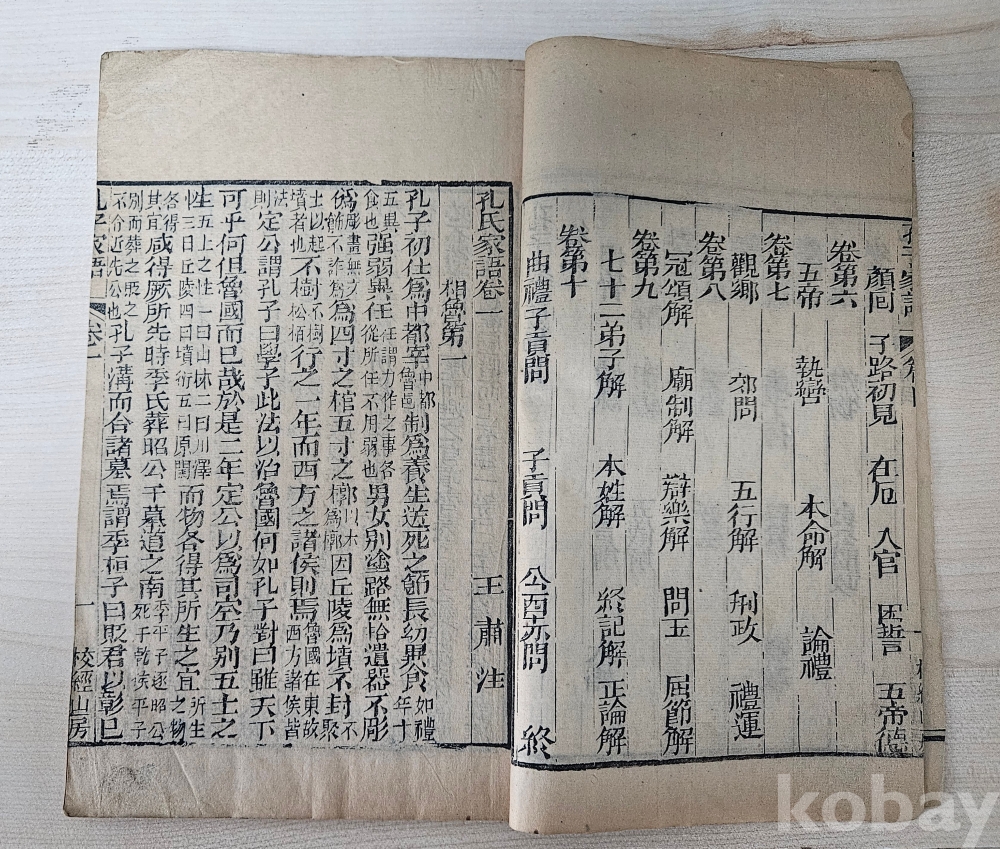 孔子家語
顏回 子路初見 在厄 入官 困誓 五帝德
卷第六
五帝 執轡 本命解 論禮
卷第七
觀鄉 郊問 五行解 刑政 禮運
卷第八
冠頌解 廟制解 辯樂解 問玉 屈節解
卷第九
七十二弟子解 本姓解 終記解 正論解
卷第十
曲禮子貢問 子貢問 公西赤問 終
孔氏家語卷一 王肅注
相魯第一
孔子初仕爲中都宰中都魯邑制爲養生送死之節長幼異食如禮年十
五異食也强弱異任任謂力作之事各從所任不用弱也男女別塗路無拾遺器不彫
僞彫畫無文飾不詐僞爲四寸之棺五寸之椁以木爲椁因丘陵爲墳不封不聚
土以起墳者也不樹不樹松栢行之一年而西方之諸侯則焉魯國在東故西方諸侯皆
法則定公謂孔子曰學子此法以治魯國何如孔子對曰雖天下
可乎何但魯國而已哉於是二年定公以爲司空乃別五土之
性五土之性一曰山林二曰川澤三曰丘陵四曰墳衍五曰原隰而物各得其所生之宜所生之物
各得其宜咸得厥所先時季氏葬昭公于墓道之南季平子逐昭公死于乾侯平子
別而葬之貶之不令近先公也孔子溝而合諸墓焉謂季桓子曰貶君以彰己
孔子家語 卷一 一 校經山房
kobay